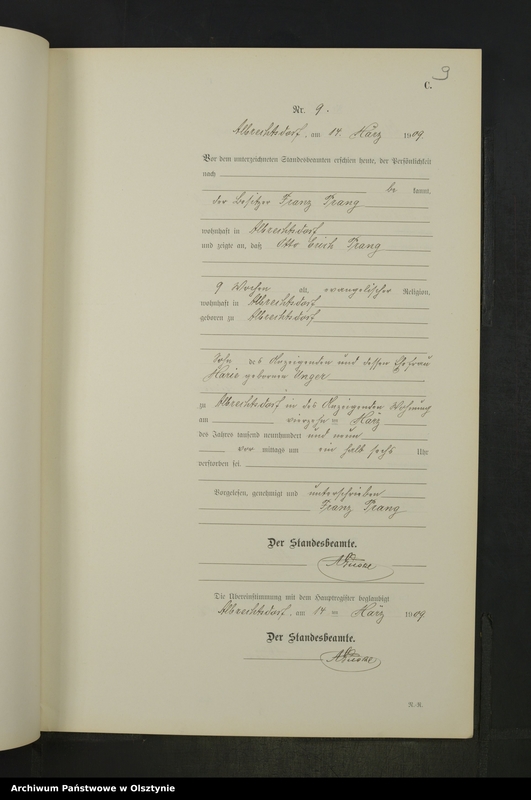 9
C.
Nr. 9.
Albrechtsdorf, am 14. März 1909.
Vor dem unterzeichneten Standesbeamten erschien heute, der Persönlichkeit
nach
be kannt,
der Besitzer Franz Prang
wohnhaft in Albrechtsdorf
und zeigte an, daß Otto Erich Prang
9 Wochen alt, evangelischer Religion,
wohnhaft in Albrechtsdorf
geboren zu Albrechtsdorf
Sohn des Anzeigenden und dessen Ehefrau
Marie geborenen Unger
zu Albrechtsdorf in des Anzeigenden Wohnung
am vierzehn ten März
des Jahres tausend neunhundert und neun
vor mittags um ein halb sechs Uhr
verstorben sei.
Vorgelesen, genehmigt und unterschrieben
Franz Prang
Der Standesbeamte.
Die Übereinstimmung mit dem Hauptregister beglaubigt
Albrechtsdorf, am 14 ten März 1909.
Der Standesbeamte.
Archiwum Państwowe w Olsztynie